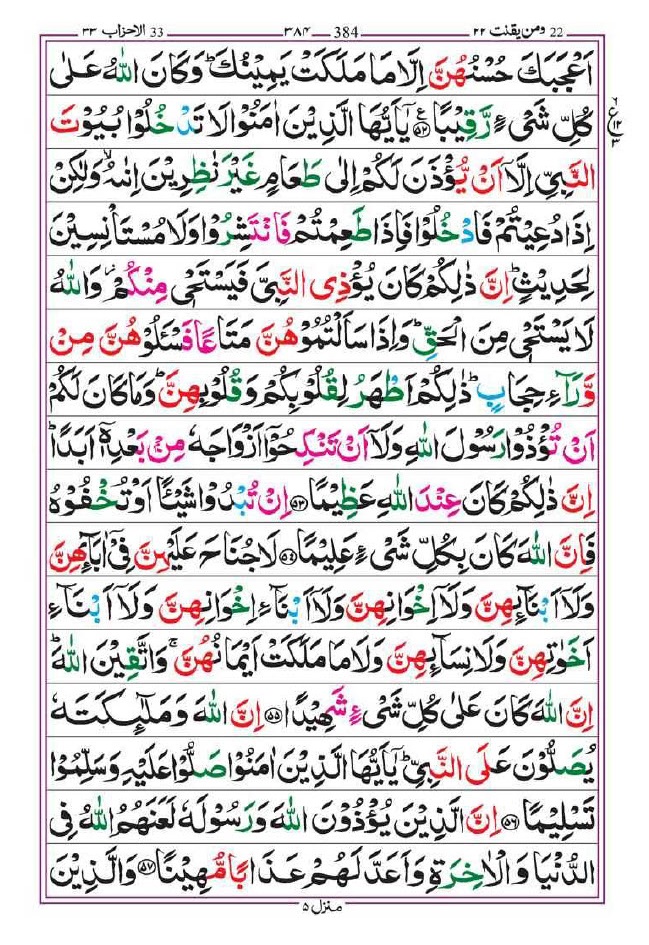 22 ومن یقنت ۲۲ 384 ۳۸۴ الاحزاب 33 ۳۳
اَعْجَبَكَ حُسْنُهُنَّ اِلَّا مَا مَلَكَتْ يَمِيْنُكَ ؕ وَكَانَ اللّٰهُ عَلٰى
كُلِّ شَىْءٍ رَّقِيْبًا ﴿۵۲﴾ يٰۤاَيُّهَا الَّذِيْنَ اٰمَنُوْا لَا تَدْخُلُوْا بُيُوْتَ
النَّبِىِّ اِلَّاۤ اَنْ يُّؤْذَنَ لَكُمْ اِلٰى طَعَامٍ غَيْرَ نٰظِرِيْنَ اِنٰٮهُ ۙ وَلٰكِنْ
اِذَا دُعِيْتُمْ فَادْخُلُوْا فَاِذَا طَعِمْتُمْ فَانْتَشِرُوْا وَلَا مُسْتَاْنِسِيْنَ
لِحَدِيْثٍ ؕ اِنَّ ذٰلِكُمْ كَانَ يُؤْذِى النَّبِىَّ فَيَسْتَحْىٖ مِنْكُمْ ۫ وَاللّٰهُ
لَا يَسْتَحْىٖ مِنَ الْحَقِّ ؕ وَاِذَا سَاَلْتُمُوْهُنَّ مَتَاعًا فَسْئَلُوْهُنَّ مِنْ
وَّرَآءِ حِجَابٍ ؕ ذٰلِكُمْ اَطْهَرُ لِقُلُوْبِكُمْ وَقُلُوْبِهِنَّ ؕ وَمَا كَانَ لَكُمْ
اَنْ تُؤْذُوْا رَسُوْلَ اللّٰهِ وَلَاۤ اَنْ تَنْكِحُوْۤا اَزْوَاجَهٗ مِنْۢ بَعْدِهٖۤ اَبَدًا ؕ
اِنَّ ذٰلِكُمْ كَانَ عِنْدَ اللّٰهِ عَظِيْمًا ﴿۵۳﴾ اِنْ تُبْدُوْا شَيْئًا اَوْ تُخْفُوْهُ
فَاِنَّ اللّٰهَ كَانَ بِكُلِّ شَىْءٍ عَلِيْمًا ﴿۵۴﴾ لَا جُنَاحَ عَلَيْهِنَّ فِىْۤ اٰبَآئِهِنَّ
وَلَاۤ اَبْنَآئِهِنَّ وَلَاۤ اِخْوَانِهِنَّ وَلَاۤ اَبْنَآءِ اِخْوَانِهِنَّ وَلَاۤ اَبْنَآءِ
اَخَوٰتِهِنَّ وَلَا نِسَآئِهِنَّ وَلَا مَا مَلَكَتْ اَيْمَانُهُنَّ ۚ وَاتَّقِيْنَ اللّٰهَ ؕ
اِنَّ اللّٰهَ كَانَ عَلٰى كُلِّ شَىْءٍ شَهِيْدًا ﴿۵۵﴾ اِنَّ اللّٰهَ وَمَلٰٓئِكَتَهٗ
يُصَلُّوْنَ عَلَى النَّبِىِّ ؕ يٰۤاَيُّهَا الَّذِيْنَ اٰمَنُوْا صَلُّوْا عَلَيْهِ وَسَلِّمُوْا
تَسْلِيْمًا ﴿۵۶﴾ اِنَّ الَّذِيْنَ يُؤْذُوْنَ اللّٰهَ وَرَسُوْلَهٗ لَعَنَهُمُ اللّٰهُ فِى
الدُّنْيَا وَالْاٰخِرَةِ وَاَعَدَّ لَهُمْ عَذَابًا مُّهِيْنًا ﴿۵۷﴾ وَالَّذِيْنَ
منزل ۵